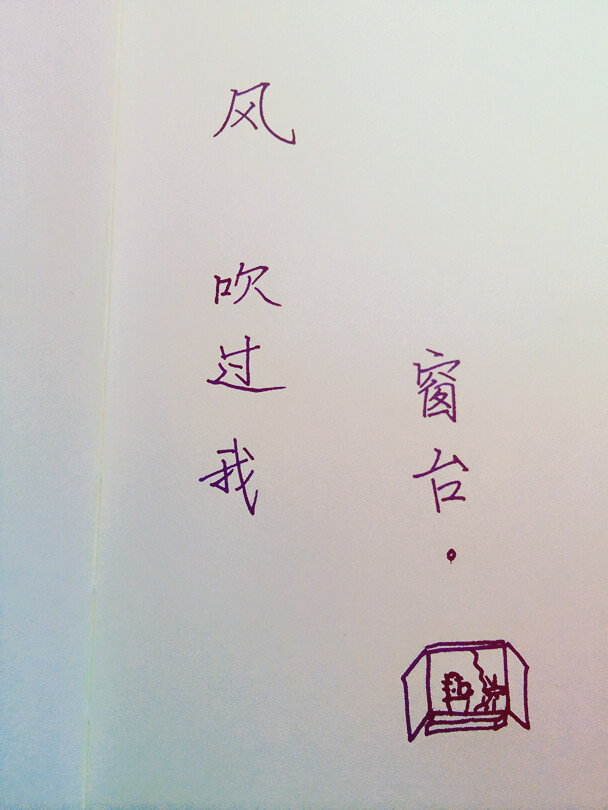 风吹过我
窗台·